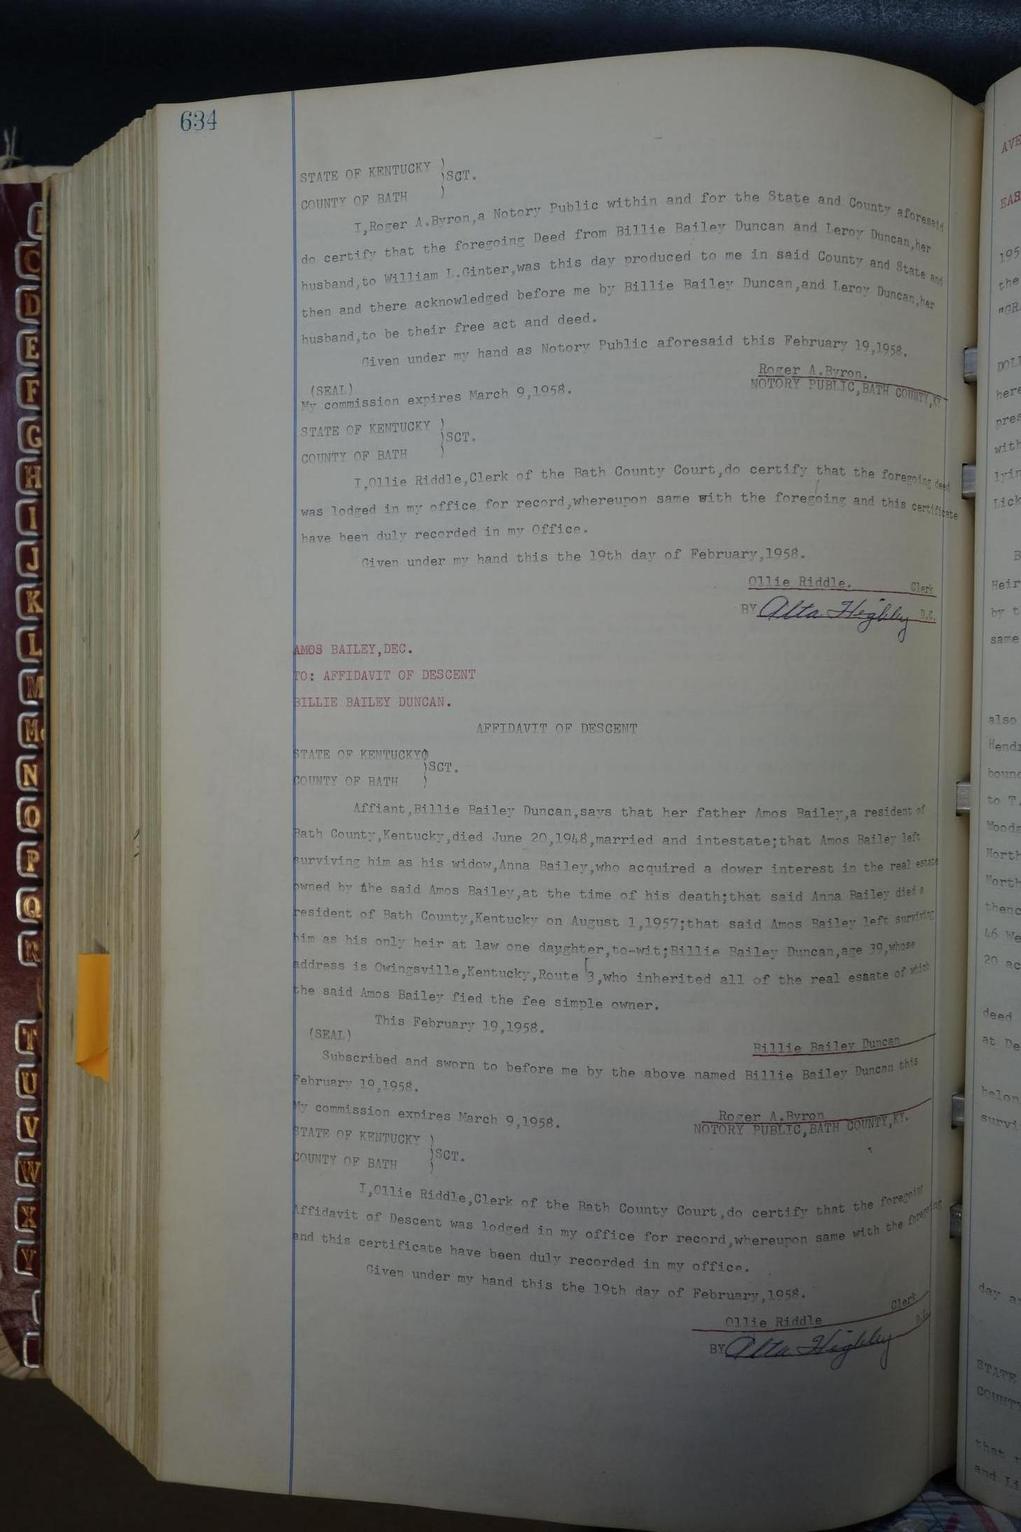 634
STATE OF KENTUCKY )
)SCT.
COUNTY OF BATH )
I,Roger A.Byron,a Notory Public within and for the State and County aforesaid
do certify that the foregoing Deed from Billie Bailey Duncan and Leroy Duncan,her
husband,to William L.Ginter,was this day produced to me in said County and State and
then and there acknowledged before me by Billie Bailey Duncan,and Leroy Duncan,her
husband,to be their free act and deed.
Given under my hand as Notory Public aforesaid this February 19,1958.
(SEAL) Roger A.Byron.
My commission expires March 9,1958. NOTORY PUBLIC,BATH COUNTY,KY
STATE OF KENTUCKY )
)SCT.
COUNTY OF BATH )
I,Ollie Riddle,Clerk of the Bath County Court,do certify that the foregoing deed
was lodged in my office for record,whereupon same with the foregoing and this certificate
have been duly recorded in my Office.
Given under my hand this the 19th day of February,1958.
Ollie Riddle. Clerk
BY Alta Highley D.C.
AMOS BAILEY,DEC.
TO: AFFIDAVIT OF DESCENT
BILLIE BAILEY DUNCAN.
AFFIDAVIT OF DESCENT
STATE OF KENTUCKY)
)SCT.
COUNTY OF BATH )
Affiant,Billie Bailey Duncan,says that her father Amos Bailey,a resident of
Bath County,Kentucky,died June 20,1948,married and intestate;that Amos Bailey left
surviving him as his widow,Anna Bailey,who acquired a dower interest in the real estate
owned by the said Amos Bailey,at the time of his death;that said Anna Bailey died a
resident of Bath County,Kentucky on August 1,1957;that said Amos Bailey left surviving
him as his only heir at law one dayghter,to-wit;Billie Bailey Duncan,age 39,whose
address is Owingsville,Kentucky,Route 3,who inherited all of the real esaate of which
the said Amos Bailey fied the fee simple owner.
This February 19,1958.
(SEAL) Billie Bailey Duncan
Subscribed and sworn to before me by the above named Billie Bailey Duncan this
February 19,1958.
My commission expires March 9,1958. Roger A.Byron
NOTORY PUBLIC,BATH COUNTY,KY.
STATE OF KENTUCKY )
)SCT.
COUNTY OF BATH )
I,Ollie Riddle,Clerk of the Bath County Court,do certify that the foregoing
Affidavit of Descent was lodged in my office for record,whereupon same with the foregoing
and this certificate have been duly recorded in my office.
Given under my hand this the 19th day of February,1958.
Ollie Riddle Clerk
BY Alta Highley D.C.
C
D
E
F
G
H
I
J
K
L
M
Mc
N
O
P
Q
R
T
U
V
W
X
Y
195
the
here
with
Lick
by t
same
also
to T.
North
North
20 ac
deed
at De
STATE